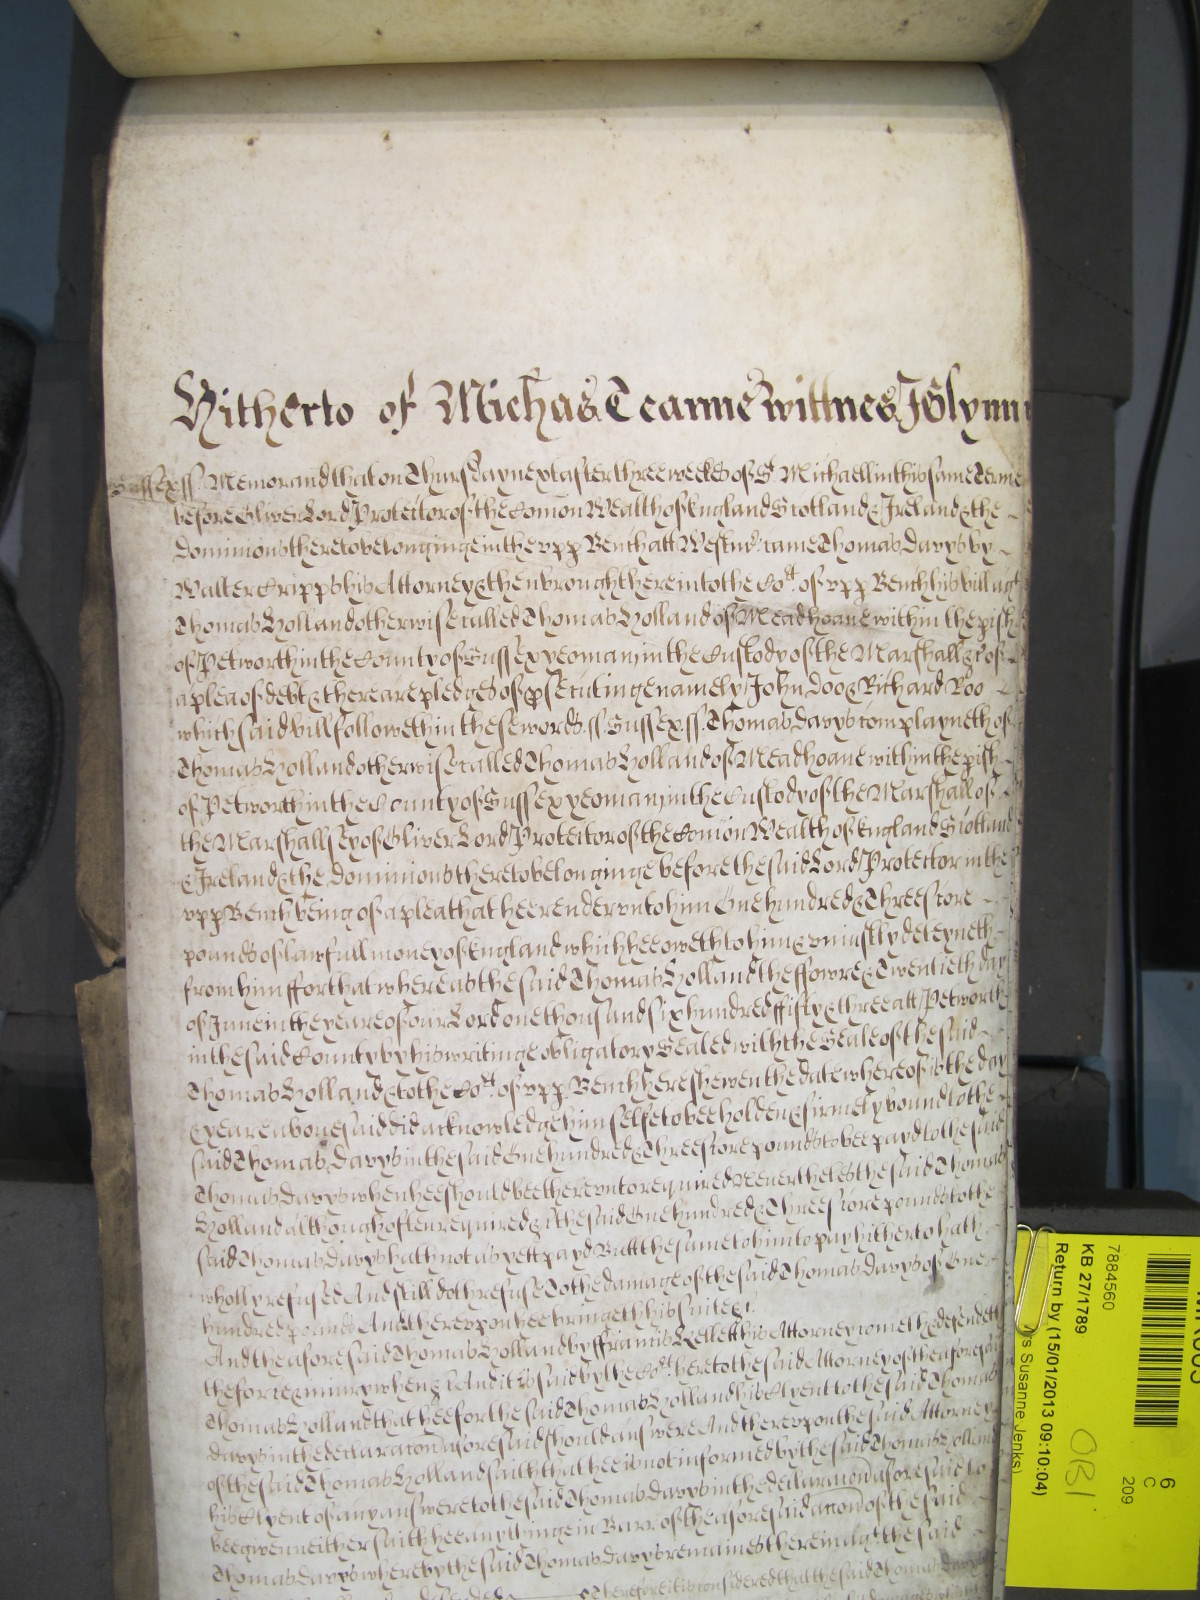 Hitherto of Michas Tearme Wittnes J Glynn
Sussex ss Memorand that on Thursday next after three weekes of St. Michaell in this same Terme
before Oliver Lord Protector of the Comon Wealth of England Scotland & Ireland & the
Dominions thereto belonginge in the upp Bench att Westmr. came Thomas Davys by
Walter Cripps his Attorney & then brought here into the Cort. of upp Bench his bill agt
Thomas Holland otherwise called Thomas Holland of Meadhoane within the pish
of Petworth in the County of Sussex yeoman in the Custody of the Marshall &c of
a plea of debt & there are pledges of psecutinge namely John Doo & Richard Roo
which said bill followeth in these words ss Sussex ss Thomas Davys complayneth of
Thomas Holland otherwise called Thomas Holland of Meadhoane within the pish
of Petworth in the County of Sussex yeoman in the Custody of the Marshall of
the Marshallsey of Oliver Lord Protector of the Comon Wealth of England Scotland
& Ireland & the Dominions thereto belonginge before the said Lord Protector in the
upp Bench being of a plea that hee render unto him One hundred & Threescore
pounds of lawfull money of England which hee oweth to him & uniustly deteyneth
from him ffor that whereas the said Thomas Holland the ffowre & Twentieth day
of June in the yeare of our Lord one thousand six hundred ffifty & three att Petworth
in the said County by his writinge obligatory Sealed with the Seale of the said
Thomas Holland & to the Cort. of upp Bench here shewen the date whereof is the day
& yeare abovesaid did acknowledge himselfe to bee holden & firmely bound to the
said Thomas Davys in the said One hundred & Threescore pounds to bee payd to the said
Thomas Davys when hee should bee thereunto required Neverthelesse the said Thomas
Holland although often required &c the said One hundred & Threescore pounds to the
said Thomas Davys hath not as yett payd Butt the same to him to pay hitherto hath
wholly refused And still doth refuse To the damage of the said Thomas Davys of One
hundred pounds And thereupon hee bringeth his suite &c.
And the aforesaid Thomas Holland by ffrancis Kellett his Attorney cometh & defendeth
the force & iniury when &c And it is said by the Cort. here to the said Attorney of the aforesaid
Thomas Holland that hee for the said Thomas Holland his Clyent to the said Thomas
Davys in the declaracon aforesaid should answere And thereupon the said Attorney
of the said Thomas Holland saith that hee is not informed by the said Thomas Holland
his Clyent of any answere to the said Thomas Davys in the declaracon aforesaid to
bee given neither saith hee any thinge in Barr of the aforesaid accon of the said
Thomas Davys whereby the said Thomas Davys remaines therein agt the said
Therefore it is considered that the said Thomas Davys
7884560
KB 27/1789
Return by (15/01/2013 09:10:04)
Susanne Jenks)
OBI
6
C
209